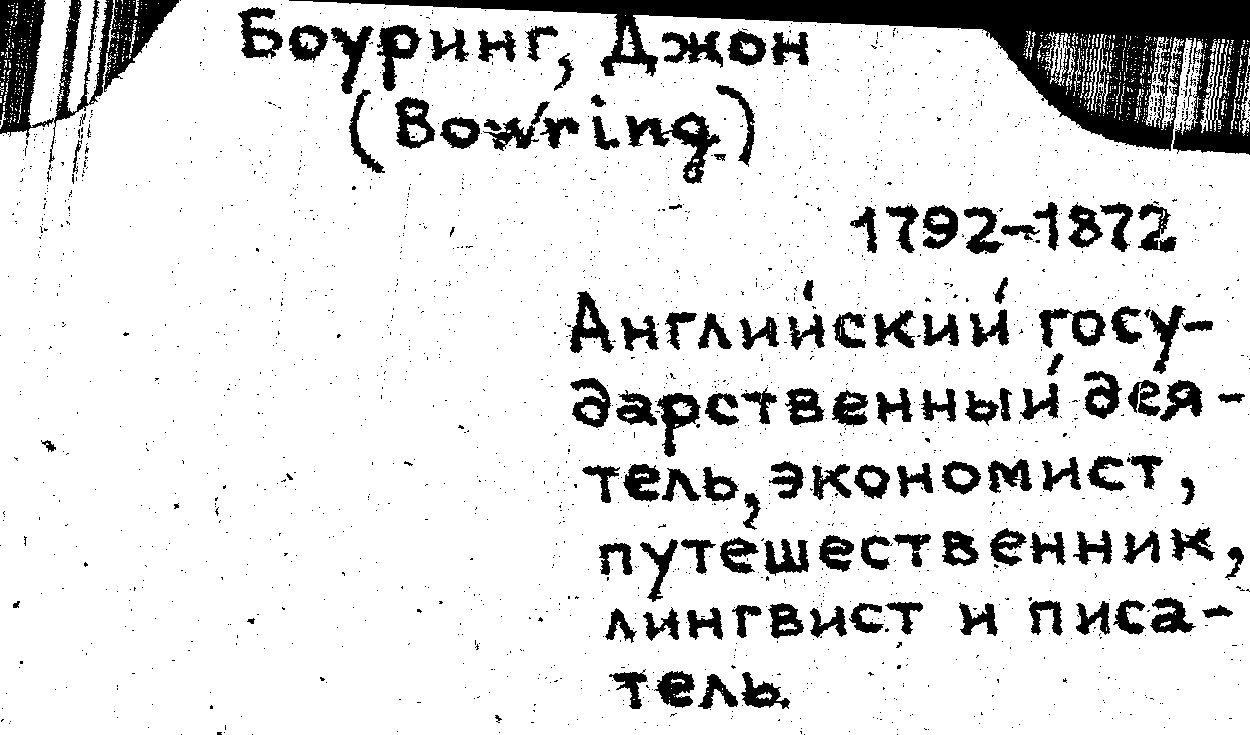 Боуринг, Джон
(Bowring)
1792-1872
Английский госу-
дарственный дея-
тель, экономист,
путешественник,
лингвист и писа-
тель.